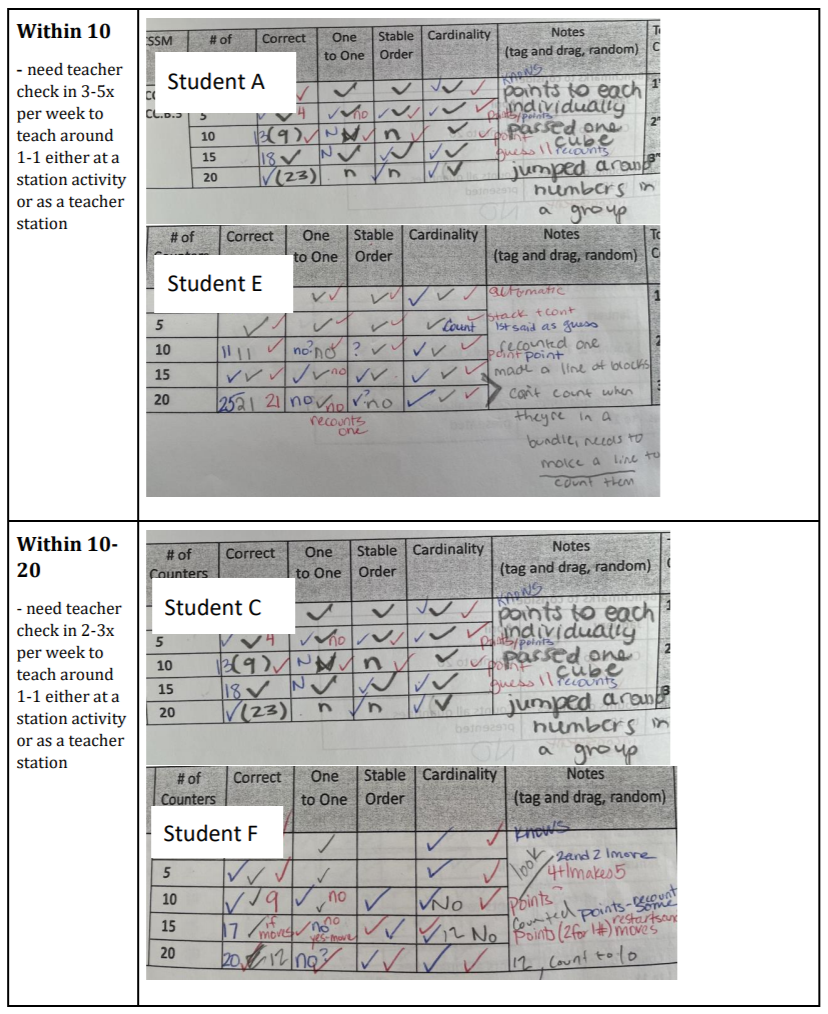 Within 10
- need teacher
check in 3-5x
per week to
teach around
1-1 either at a
station activity
or as a teacher
station
# of Correct One Stable Cardinality Notes
to One Order (tag and drag, random)
Student A
knows
points to each
5 4 no individually
points/points
10 13(9) N n passed one
point cube
15 18 N guess 11 recounts
20 (23) n n jumped around
numbers in
a group
# of Correct One Stable Cardinality Notes
to One Order (tag and drag, random)
Student E
automatic
stack + cont
5 Count 1st said as guess
10 11 11 no? no ? recounted one
point point
15 no made a line of blocks
20 25 21 21 no no ? no can't count when
recounts they're in a
one bundle, needs to
make a line to
count them
Within 10-
20
- need teacher
check in 2-3x
per week to
teach around
1-1 either at a
station activity
or as a teacher
station
# of Correct One Stable Cardinality Notes
Counters to One Order (tag and drag, random)
Student C
knows
points to each
5 4 no individually
points/points
10 13(9) N n passed one
point cube
15 18 N guess 11 recounts
20 (23) n n jumped around
numbers in
a group
# of Correct One Stable Cardinality Notes
Counters to One Order (tag and drag, random)
Student F
knows
look 2 and 2 1 more
5 4+1 makes 5
10 9 no No Points
counted points-recount
some
15 17 if moves no no yes-move 12 No restarts
Points (2 for 1#) moves
20 20 12 no? 12, count to 10